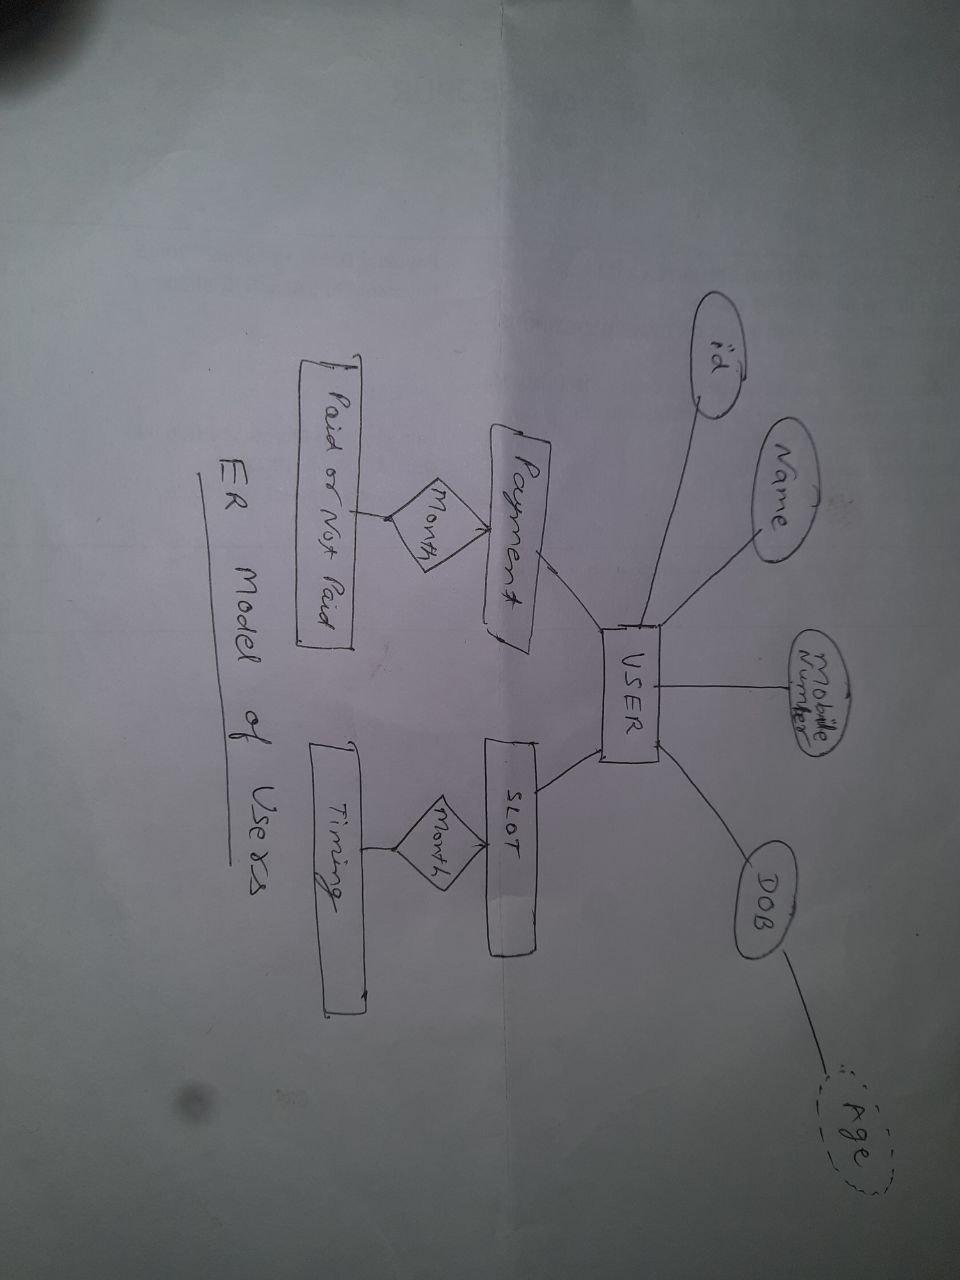 Mobile
Number
Name
DOB
Age
id
USER
Payment
SLOT
Month
Month
Paid or Not Paid
Timing
ER Model of Users